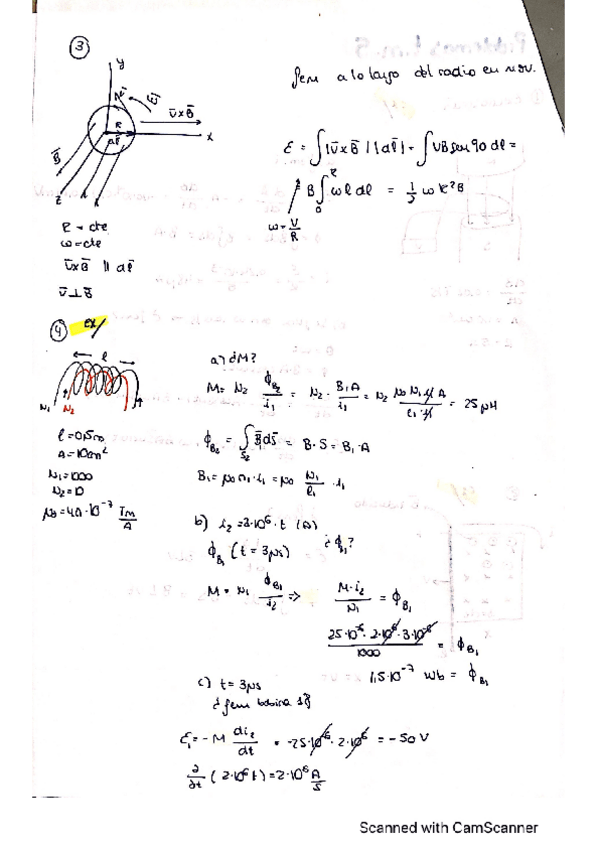 ③
y
fem a lo largo del radio en mov.
E⃗i
v̄×B̄
R
x
dl̄
B̄
z
ε = ∫ |v̄×B̄| |dl̄| = ∫ vB sen 90 dl =
B ∫₀ᴿ ωl dl = 1/2 ω R² B
ω = v/R
R = cte
ω = cte
v̄×B̄ ∥ dl̄
v̄ ⊥ B̄
④ EX/
l
N₁ N₂
a) ¿M?
M = N₂ ϕB₂/i₁ = N₂ · B₁A/i₁ = N₂ μ₀ N₁ i₁ A/l₁ · i₁ = 25 μH
l = 0,5m
A = 10cm²
ϕB₂ = ∫S₂ B̄ dS̄ = B · S = B₁ · A
N₁ = 1000
N₂ = 10
B₁ = μ₀ n₁ · i₁ = μ₀ N₁/l₁ · i₁
μ₀ = 4π · 10⁻⁷ Tm/A
b) i₂ = 2·10⁶ · t (A)
ϕB₁ (t = 3μs) ¿ϕB₁?
M = N₁ ϕB₁/i₂ ⇒ M · i₂/N₁ = ϕB₁
25·10⁻⁶ · 2·10⁶ · 3·10⁻⁶/1000 = ϕB₁
1,5·10⁻⁷ Wb = ϕB₁
c) t = 3μs
¿fem bobina 1?
ε₁ = −M di₂/dt = −25·10⁻⁶ · 2·10⁶ = −50 V
∂/∂t (2·10⁶t) = 2·10⁶ A/s
Scanned with CamScanner